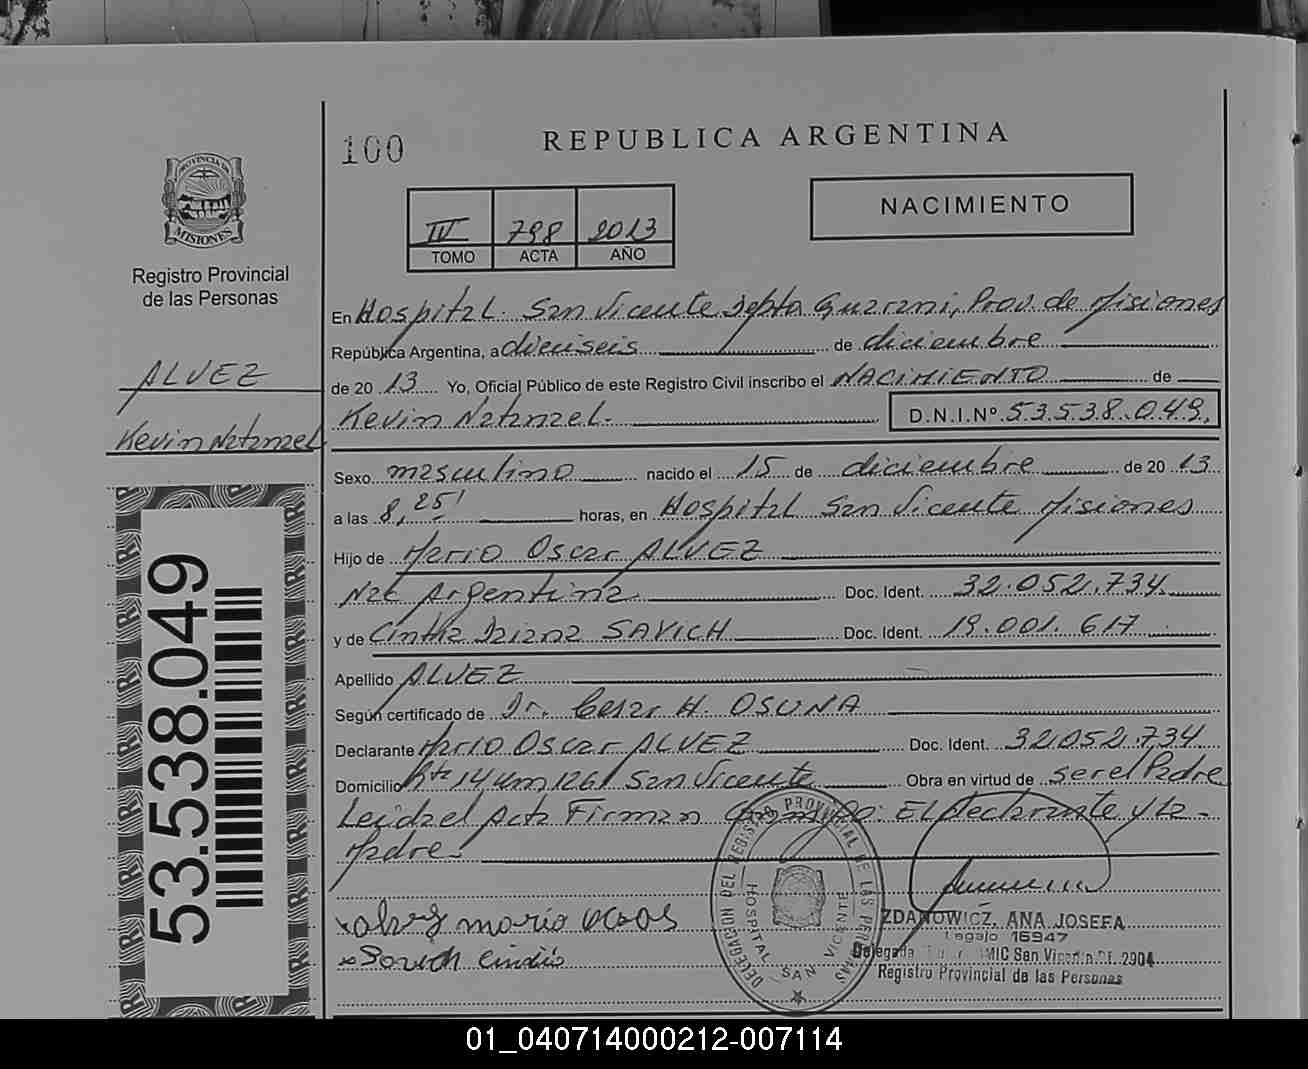 100
REPUBLICA ARGENTINA
PROVINCIA DE
MISIONES
Registro Provincial
de las Personas
NACIMIENTO
IV 798 2013
TOMO ACTA AÑO
En Hospital San Vicente Depto Guarani, Prov. de Misiones
República Argentina, a dieciseis de diciembre
de 20 13 Yo, Oficial Público de este Registro Civil inscribo el NACIMIENTO de
Kevin Natanael D.N.I.Nº 53.538.049.
ALVEZ
Kevin Natanael
Sexo masculino nacido el 15 de diciembre de 20 13
a las 8,25' horas, en Hospital San Vicente Misiones
Hijo de Mario Oscar ALVEZ
Nac Argentina Doc. Ident. 32.052.734
y de Cintia Daiana SAVICH Doc. Ident. 19.001.617
Apellido ALVEZ
Según certificado de Dr. Cesar H. OSUNA
Declarante Mario Oscar ALVEZ Doc. Ident. 32.052.734
Domicilio Rta 14 km 1261 San Vicente Obra en virtud de ser el Padre
Leida el Acta Firman El declarante y la
Madre
53.538.049
DELEGACION DEL REGISTRO PROVINCIAL DE LAS PERSONAS
HOSPITAL SAN VICENTE
alvez mario
Savich
ZDANOWICZ, ANA JOSEFA
Legajo 16947
Delegada San Vicente
Registro Provincial de las Personas
01_040714000212-007114